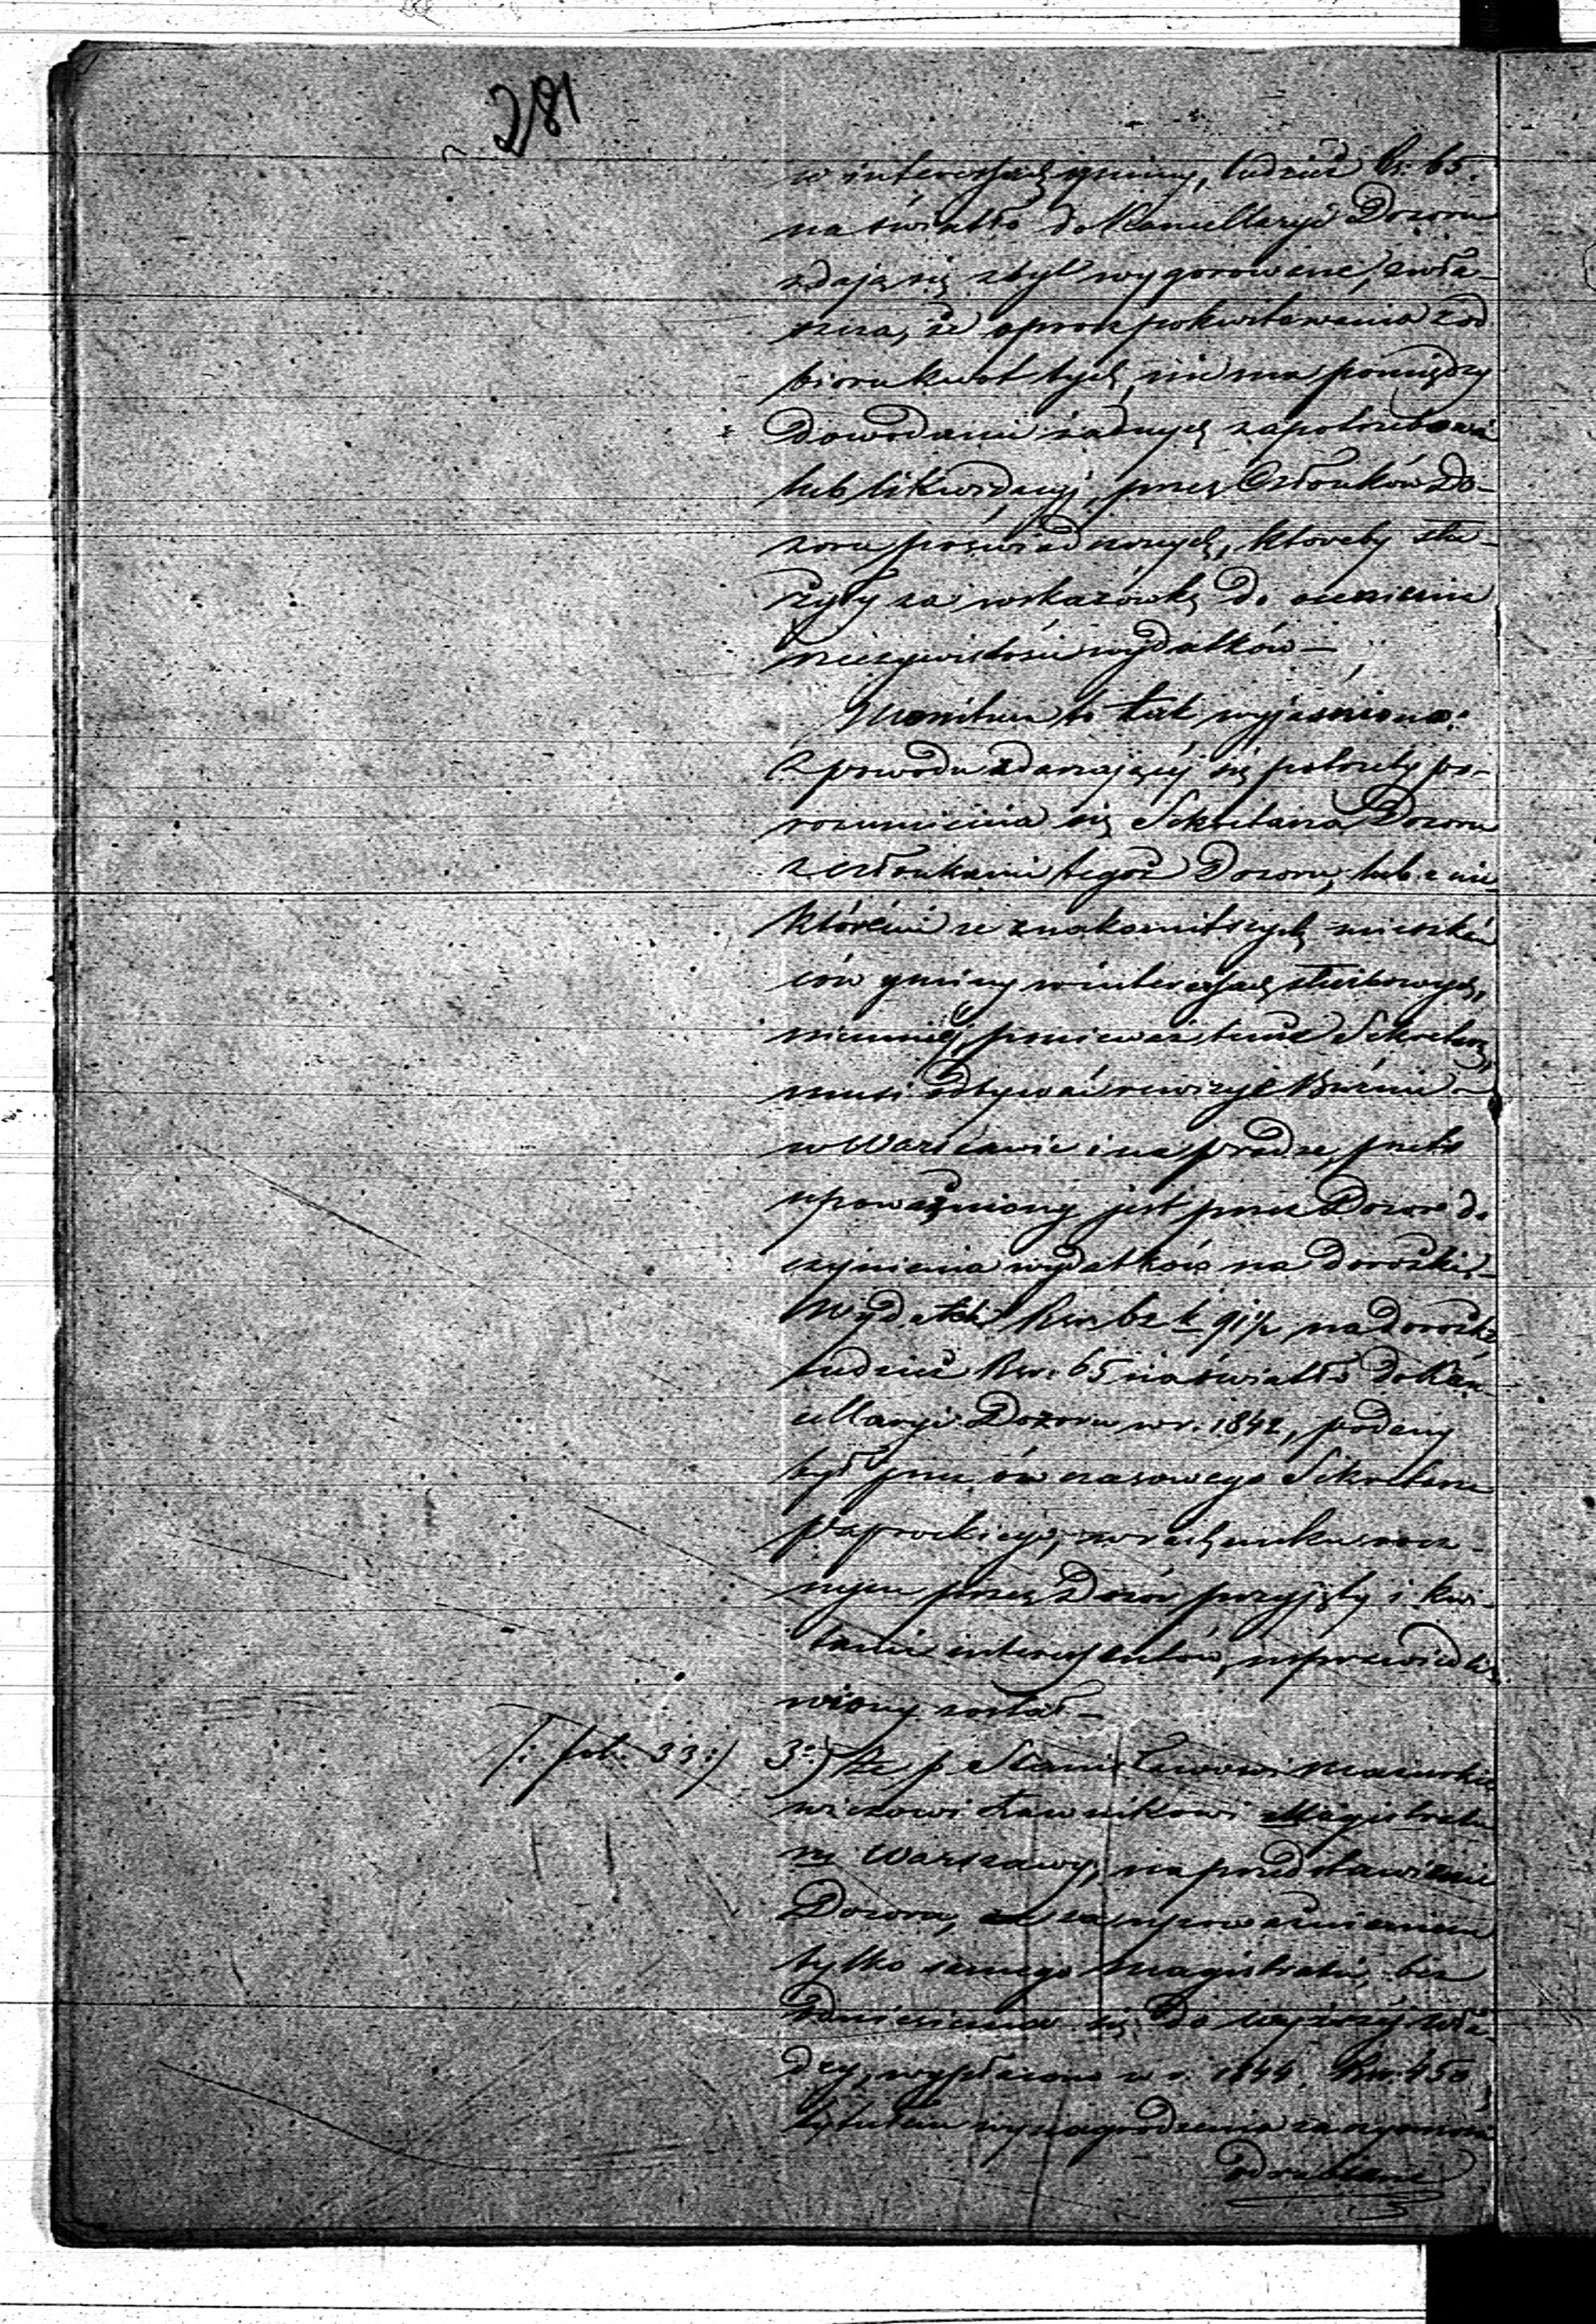 281
w interessach gminy, tudzież Rs. 65.
na światło do Kancellaryi Dozoru
zdają się zbyt wygorowane, zwła-
szcza, że oprócz pokwitowania z od
bioru kwot tych, nie ma pomiędzy
Dowodami żadnych zapotrzebowań
lub likwidacyj, przez Członków Do-
zoru poświadczonych, któreby słu-
żyły za wskazówkę do ocenienia
rzeczywistości wydatków —
Monitum to tak wyjaśniono:
Z powodu zdarzającej się potrzeby po-
rozumienia się Sekretarza Dozoru
z członkami tegoż Dozoru, lub z nie-
którémi ze znakomitszych mieszkań
ców gminy w interessach służbowych,
niemniéj, ponieważ tenże Sekretarz
musi odbywać rewizyje Bóżnic
w Warszawie i na pradze, przeto
upoważniony jest przez Dozór do
czynienia wydatków na dorożki —
Wydatek Rsr. 62 k. 91½ na dorożki
tudzież Rsr. 65 na światło do Kan-
cellaryi Dozoru w r. 1842, podany
był przez ówczasowego Sekretarza
Paprockiego, w rachunku rocz-
nym przez Dozór przyjęty i kwi-
tami interesentów, usprawiedli-
wiony został —
/: fol. 33 :/ 3º) Że p. Stanisławowi Mazurkie
wiczowi Ławnikowi Magistratu
m. Warszawy, na przedstawienie
Dozoru, za upoważnieniem
tylko samego Magistratu, bez
odniesienia się do wyższej wła-
dzy, wypłacono w r. 1844, Rsr. 450,
tytułem wynagrodzenia za
odrabianie